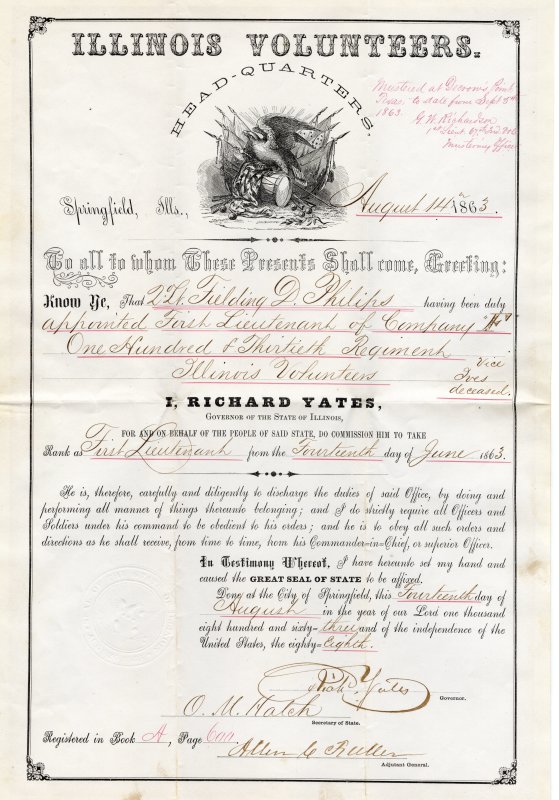 ILLINOIS VOLUNTEERS.
HEAD-QUARTERS,
Mustered at Decrow's Point
Texas to date from Sept 5th
1863.
G. W. Richardson
1st Lieut 67th Ind Vols
Mustering Officer
Springfield, Ills., August 14th 1863.
To all to whom These Presents Shall come, Greeting:
Know Ye, That 2 Lt. Fielding D. Philips having been duly
appointed First Lieutenant of Company
One Hundred & Thirtieth Regiment
Illinois Volunteers vice
Ives
deceased.
I, RICHARD YATES,
GOVERNOR OF THE STATE OF ILLINOIS,
FOR AND ON BEHALF OF THE PEOPLE OF SAID STATE, DO COMMISSION HIM TO TAKE
Rank as First Lieutenant from the Fourteenth day of June 1863.
He is, therefore, carefully and diligently to discharge the duties of said Office, by doing and
performing all manner of things thereunto belonging; and I do strictly require all Officers and
Soldiers under his command to be obedient to his orders; and he is to obey all such orders and
directions as he shall receive, from time to time, from his Commander-in-Chief, or superior Officer.
In Testimony Whereof, I have hereunto set my hand and
caused the GREAT SEAL OF STATE to be affixed.
Done at the City of Springfield, this Fourteenth day of
August in the year of our Lord one thousand
eight hundred and sixty-three and of the independence of the
United States, the eighty-Eighth.
Richd. Yates
Governor.
O. M. Hatch
Secretary of State.
Registered in Book A, Page 600
Allen C. Fuller
Adjutant General.